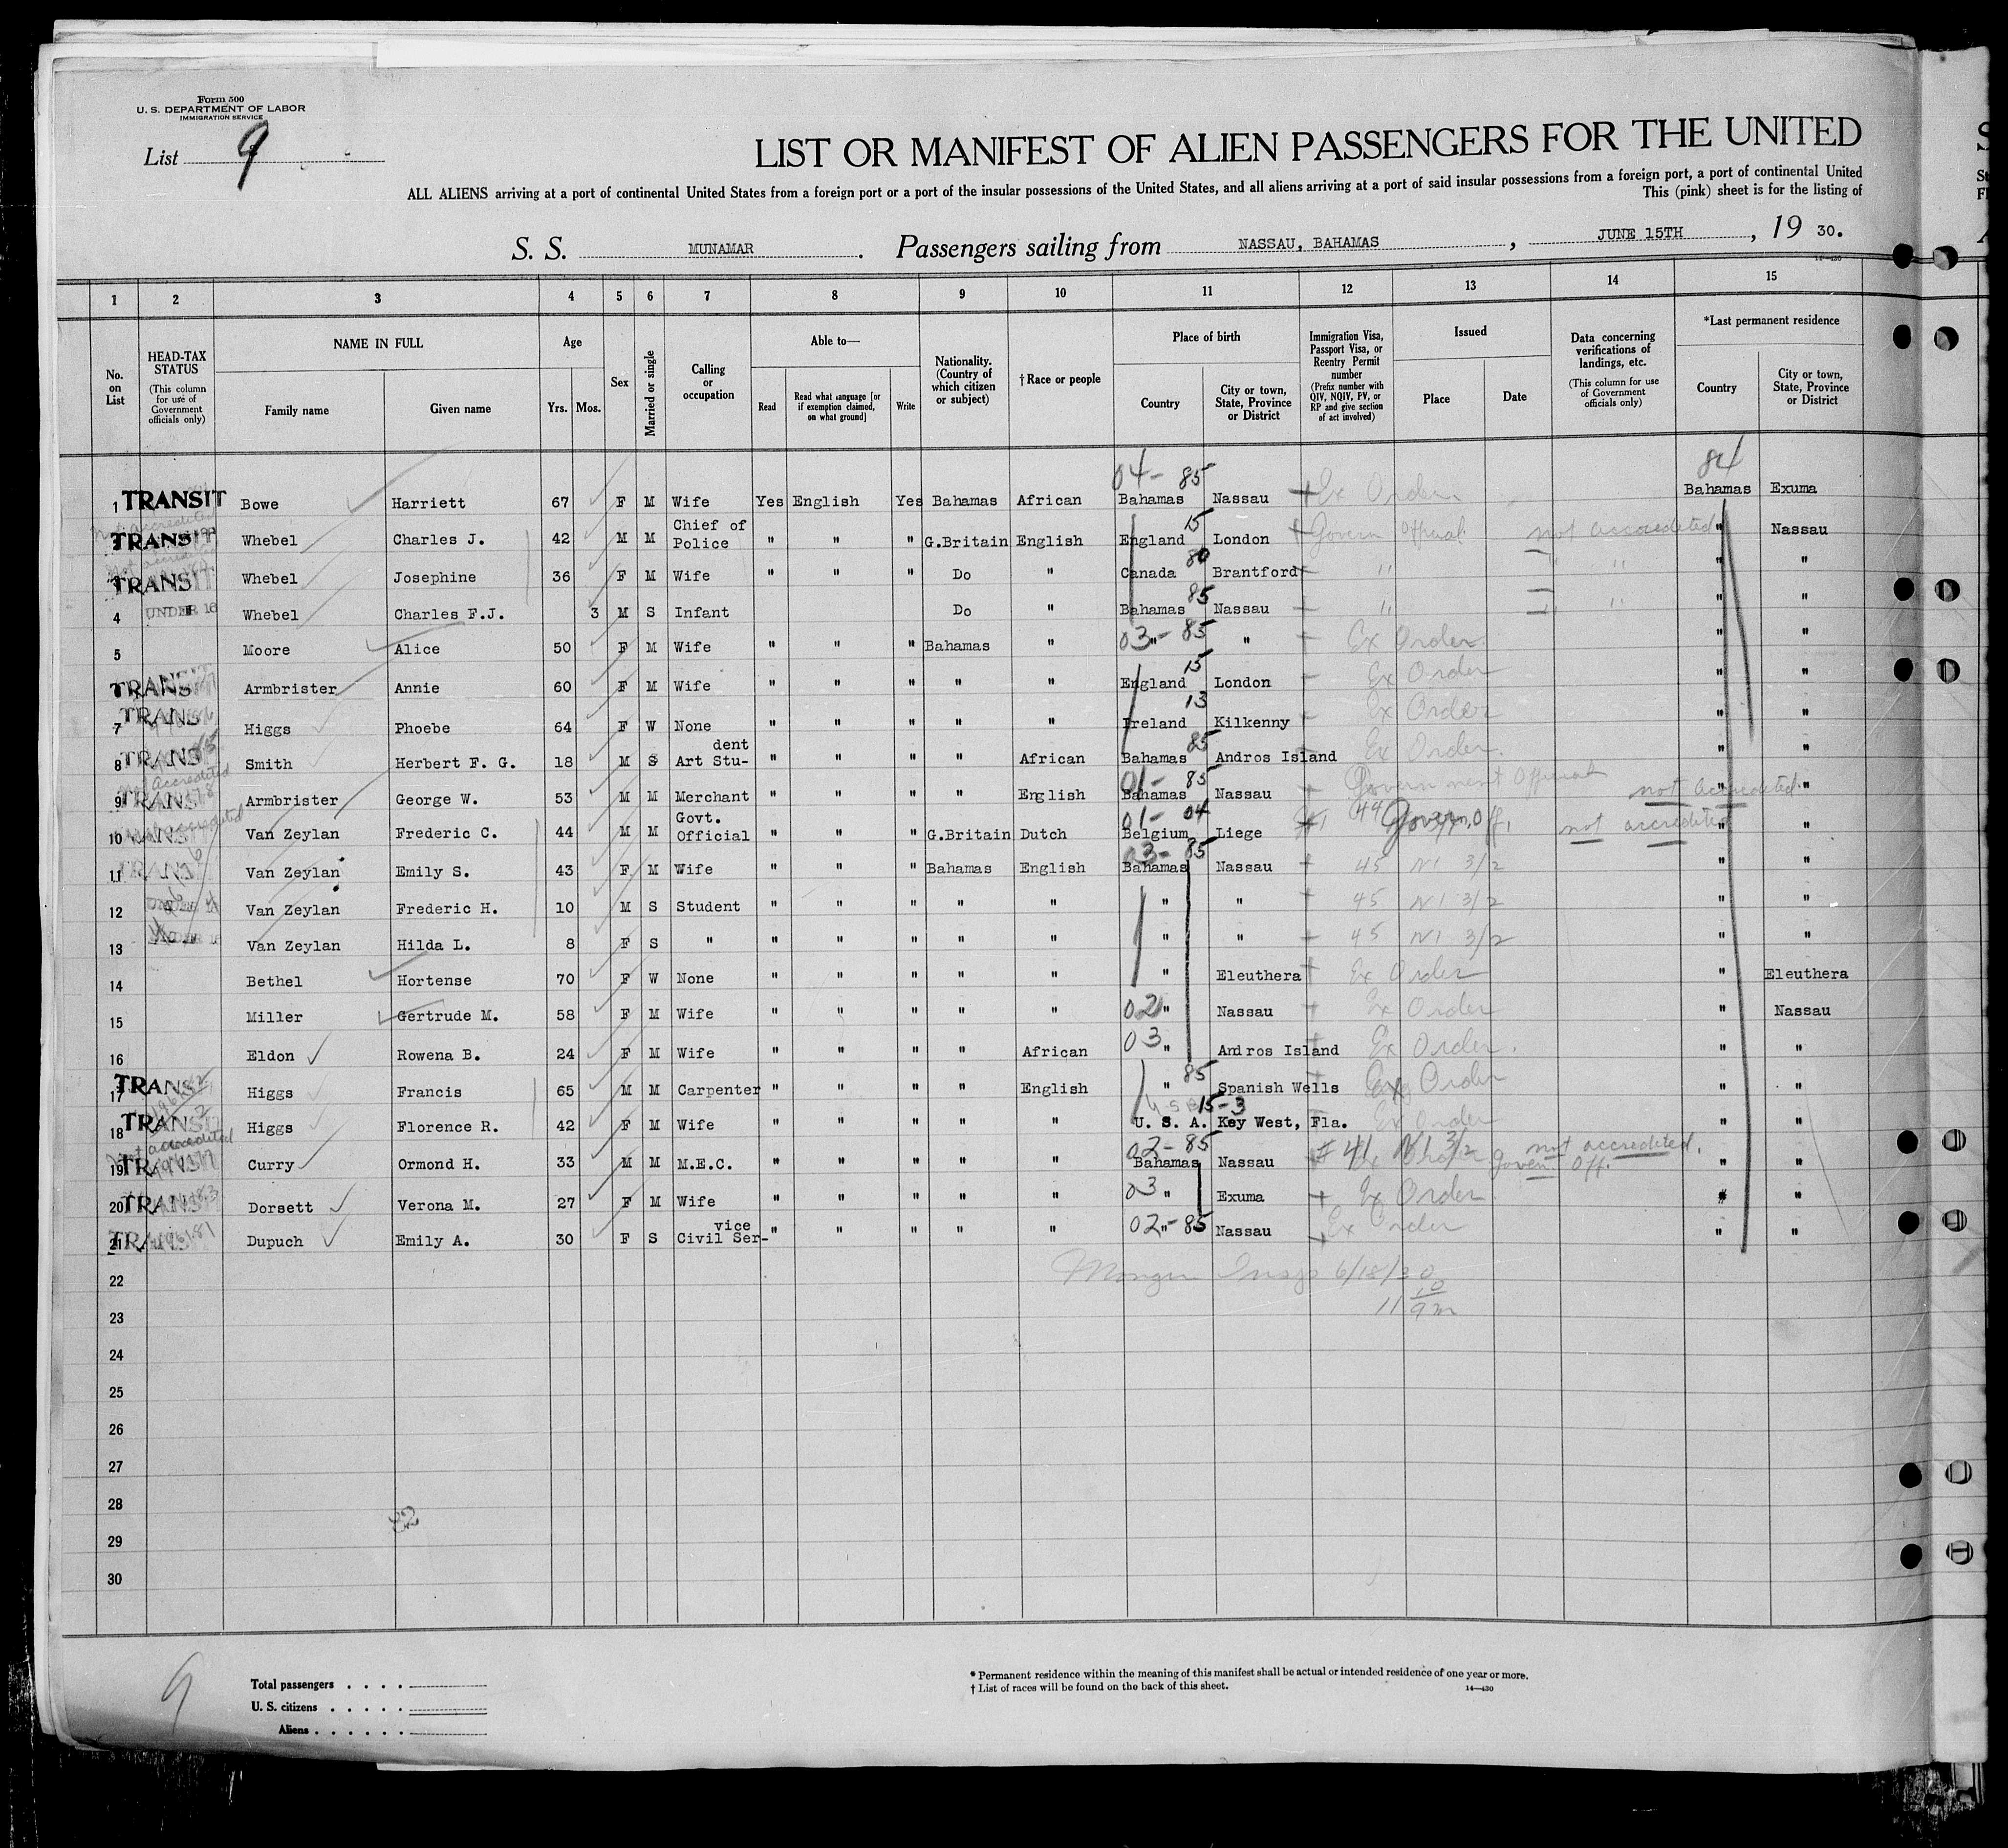 Form 500
U. S. DEPARTMENT OF LABOR
IMMIGRATION SERVICE
List 9
LIST OR MANIFEST OF ALIEN PASSENGERS FOR THE UNITED
ALL ALIENS arriving at a port of continental United States from a foreign port or a port of the insular possessions of the United States, and all aliens arriving at a port of said insular possessions from a foreign port, a port of continental United
This (pink) sheet is for the listing of
S. S. MUNAMAR. Passengers sailing from NASSAU, BAHAMAS, JUNE 15TH, 19 30.
14—430
1 2 3 4 5 6 7 8 9 10 11 12 13 14 15
No. on List
HEAD-TAX STATUS (This column for use of Government officials only)
NAME IN FULL Family name Given name
Age Yrs. Mos.
Sex
Married or single
Calling or occupation
Able to— Read Read what language [or if exemption claimed, on what ground] Write
Nationality. (Country of which citizen or subject)
†Race or people
Place of birth Country City or town, State, Province or District
Immigration Visa, Passport Visa, or Reentry Permit number (Prefix number with QIV, NQIV, PV, or RP and give section of act involved)
Issued Place Date
Data concerning verifications of landings, etc. (This column for use of Government officials only)
*Last permanent residence Country City or town, State, Province or District
04- 85 84
1 TRANSIT Bowe Harriett 67 F M Wife Yes English Yes Bahamas African Bahamas Nassau Ex Order Bahamas Exuma
2 TRANSIT Whebel Charles J. 42 M M Chief of Police " " " G.Britain English England 15 London Govern Official not accredited " Nassau
3 TRANSIT Whebel Josephine 36 F M Wife " " " Do " Canada 80 Brantford " " " " "
4 UNDER 16 Whebel Charles F.J. 3 M S Infant Do " Bahamas 85 Nassau " " " " "
5 Moore Alice 50 F M Wife " " " Bahamas " 03 " - 85 " Ex Order " "
6 TRANSIT Armbrister Annie 60 F M Wife " " " " " England 15 London Ex Order " "
7 TRANSIT Higgs Phoebe 64 F W None " " " " " Ireland 13 Kilkenny Ex Order " "
8 TRANSIT Smith Herbert F. G. 18 M S Art Student " " " " African Bahamas 85 Andros Island Ex Order. " "
9 TRANSIT Armbrister George W. 53 M M Merchant " " " " English 01- 85 Bahamas Nassau Government Official not accredited " "
10 Van Zeylan Frederic C. 44 M M Govt. Official " " " G.Britain Dutch 01- 04 Belgium Liege 44 Govern. Off. not accredited " "
11 Van Zeylan Emily S. 43 F M Wife " " " Bahamas English 03- 85 Bahamas Nassau 45 N1 3/2 " "
12 Van Zeylan Frederic H. 10 M S Student " " " " " " " 45 N1 3/2 " "
13 Van Zeylan Hilda L. 8 F S " " " " " " " " 45 N1 3/2 " "
14 Bethel Hortense 70 F W None " " " " " " Eleuthera Ex Order " Eleuthera
15 Miller Gertrude M. 58 F M Wife " " " " " 02 " Nassau Ex Order " Nassau
16 Eldon Rowena B. 24 F M Wife " " " " African 03 " Andros Island Ex Order. " "
17 TRANSIT Higgs Francis 65 M M Carpenter " " " " English " 85 Spanish Wells Ex Order " "
18 TRANSIT Higgs Florence R. 42 F M Wife " " " " " U. S. A. 15-3 Key West, Fla. Ex Order " "
19 Curry Ormond H. 33 M M M.E.C. " " " " " 02-85 Bahamas Nassau # 41 N1 3/2 Govern. Off. not accredited. " "
20 TRANSIT Dorsett Verona M. 27 F M Wife " " " " " 03 " Exuma Ex Order " "
21 Dupuch Emily A. 30 F S Civil Service " " " " " 02 " - 85 Nassau Ex Order " "
22 Insp 6/18/30
23 11
24
25
26
27
28
29
30
9
Total passengers . . . .
U. S. citizens . . . . .
Aliens . . . . . .
* Permanent residence within the meaning of this manifest shall be actual or intended residence of one year or more.
† List of races will be found on the back of this sheet.
14—430